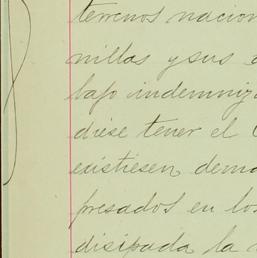 terrenos nacion
nillas y sus
bajo indemniza
diese tener el
existiesen dema
presados en los
disipada la